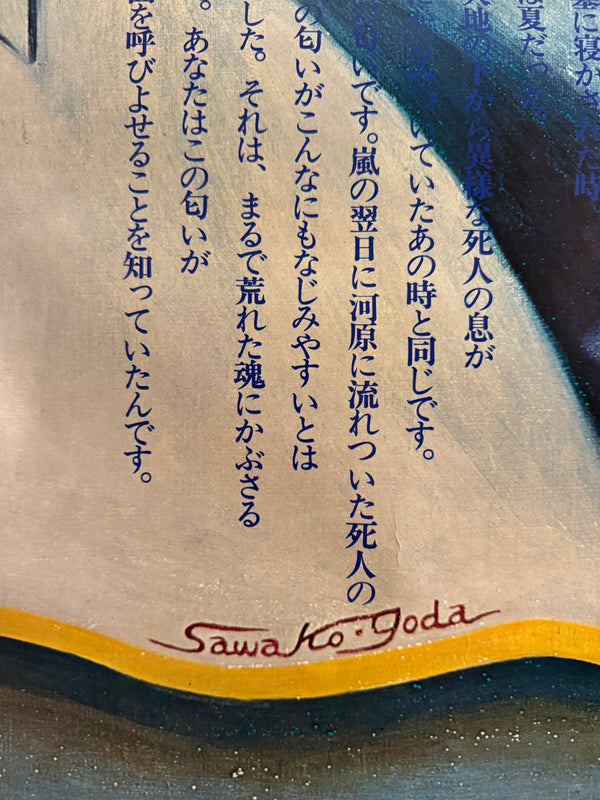 墓に寝かされた時。
は夏だった。
大地の下から異様な死人の息が
ついていたあの時と同じです。
匂いです。嵐の翌日に河原に流れついた死人の
の匂いがこんなにもなじみやすいとは
した。それは、まるで荒れた魂にかぶさる
。あなたはこの匂いが
を呼びよせることを知っていたんです。
SawaKo・Goda